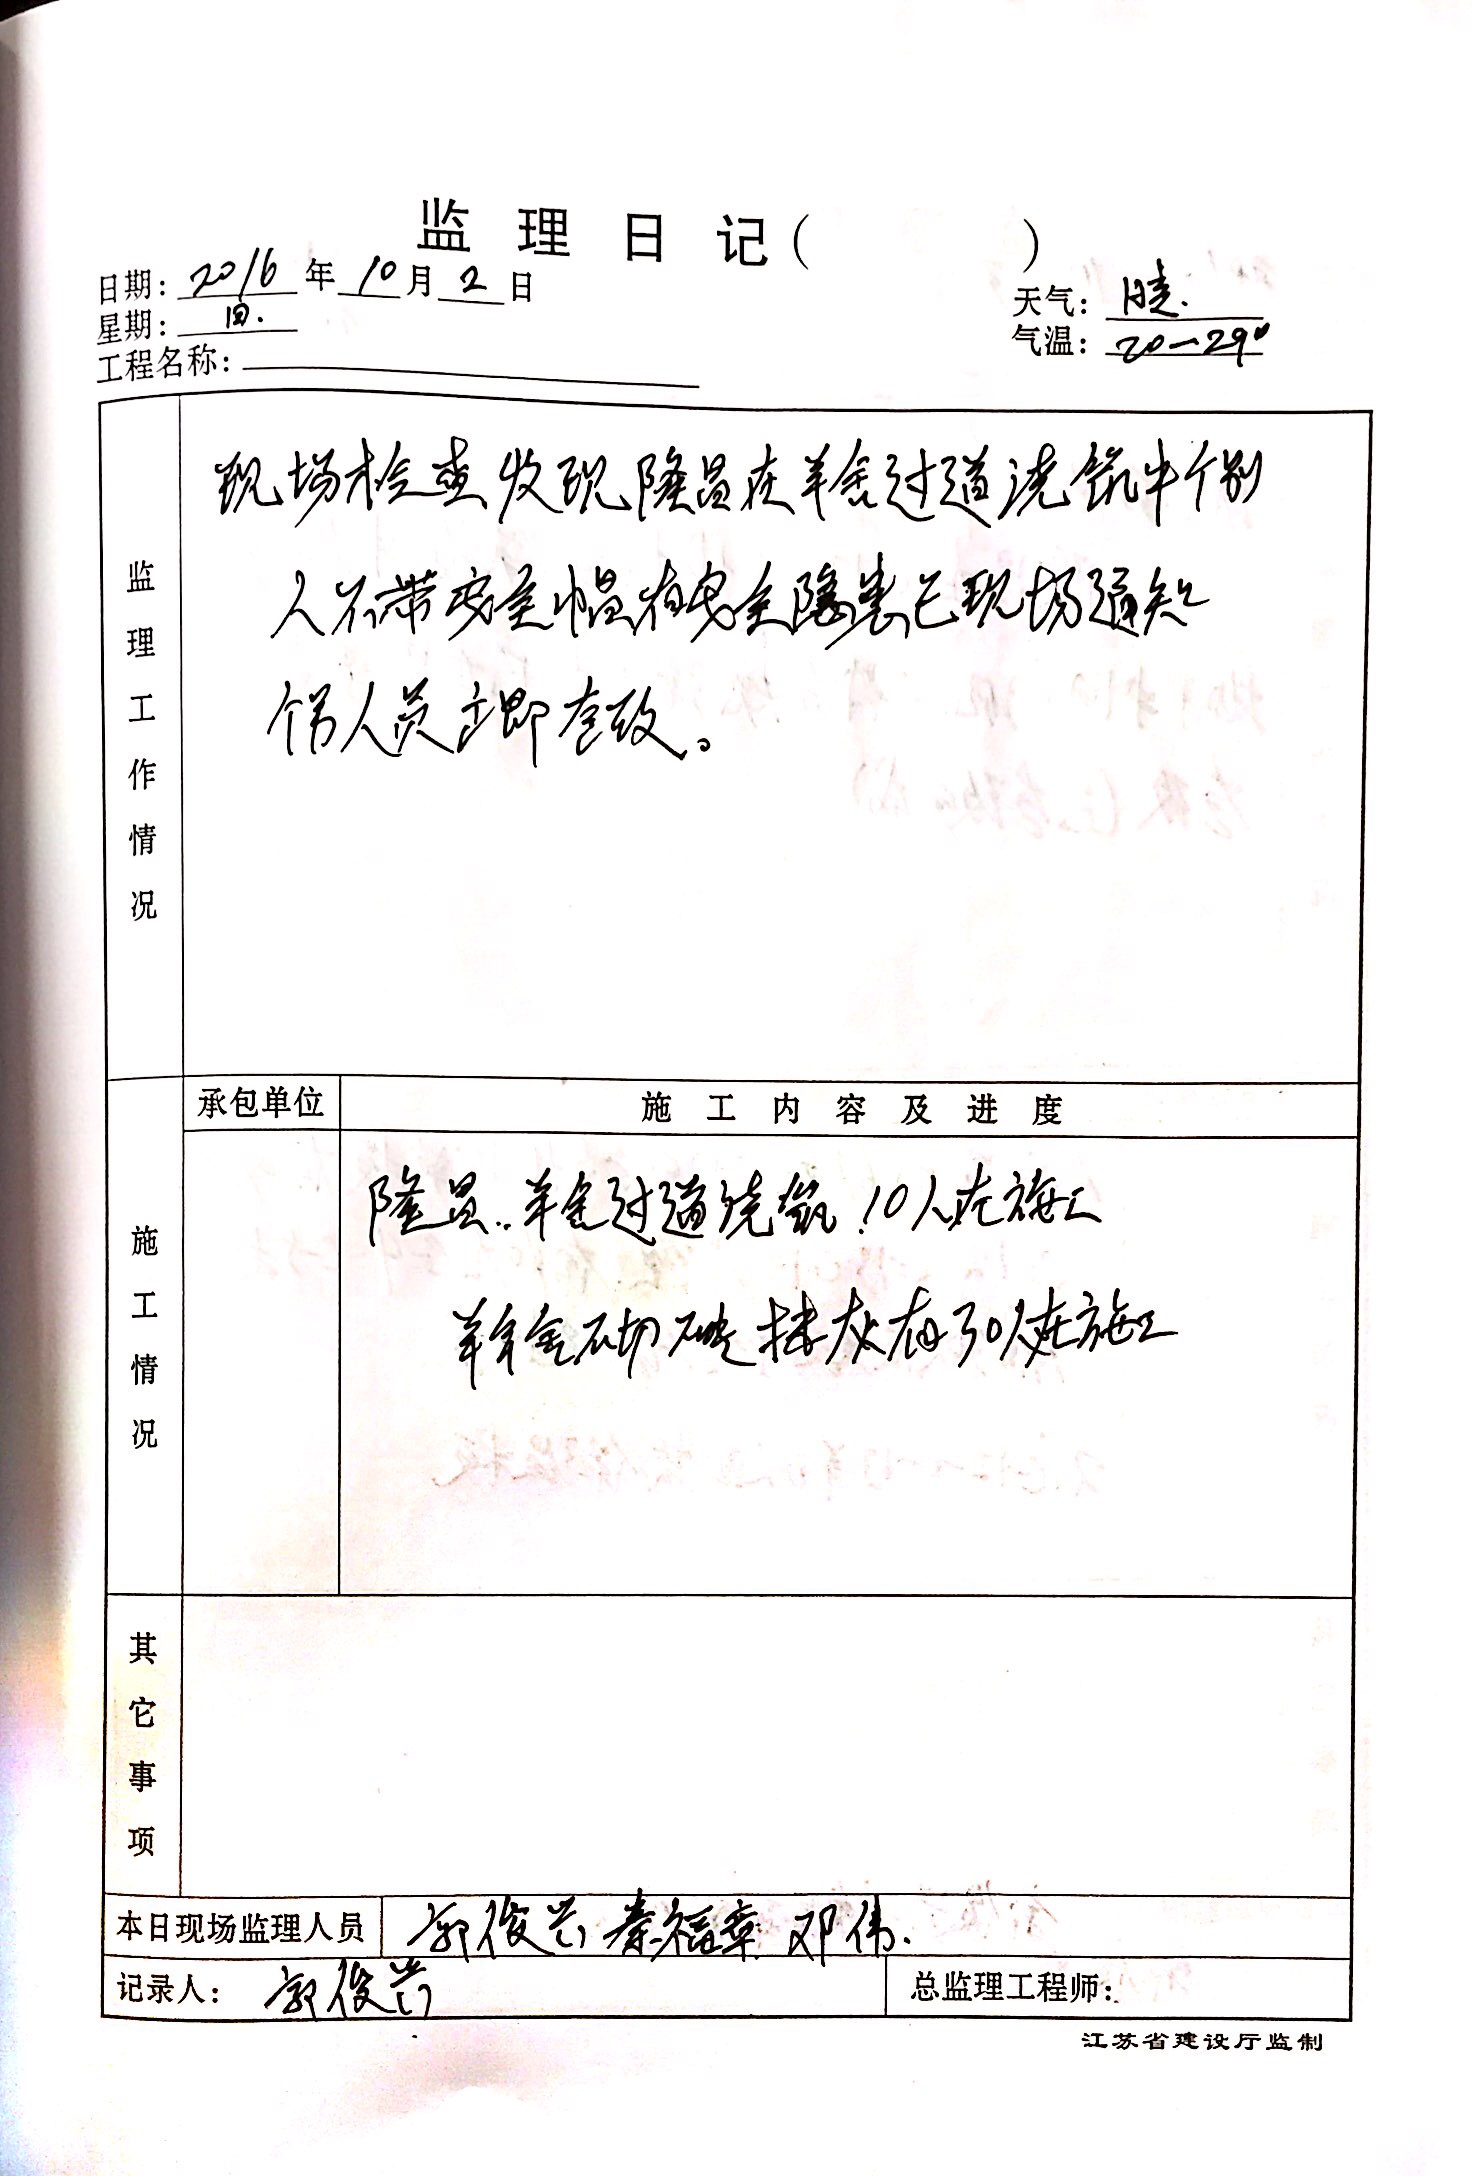 监理日记（ ）
日期：2016年10月2日
天气：晴.
星期：日.
气温：20—29°
工程名称：
监理工作情况
现场检查发现隆昌在羊舍过道浇筑中个别
人不带安全帽有安全隐患已现场通知
个别人员立即整改。
承包单位
施工内容及进度
施工情况
隆昌..羊舍过道浇筑.10人在施工
羊舍砌砖抹灰有30人在施工
其它事项
本日现场监理人员 郭俊兰 秦福章 邓伟.
记录人：郭俊兰
总监理工程师：
江苏省建设厅监制